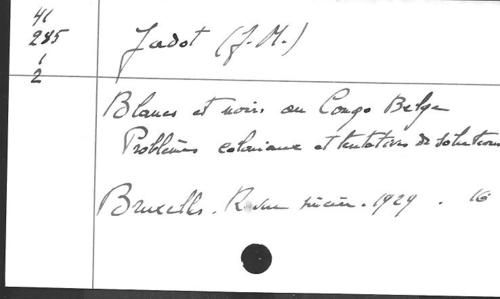 41
285
1
2
Jadot (J.M.)
Blancs et noirs au Congo Belge
Problèmes coloniaux et tentatives de solutions
Bruxelles. Revue sincère. 1929. 16